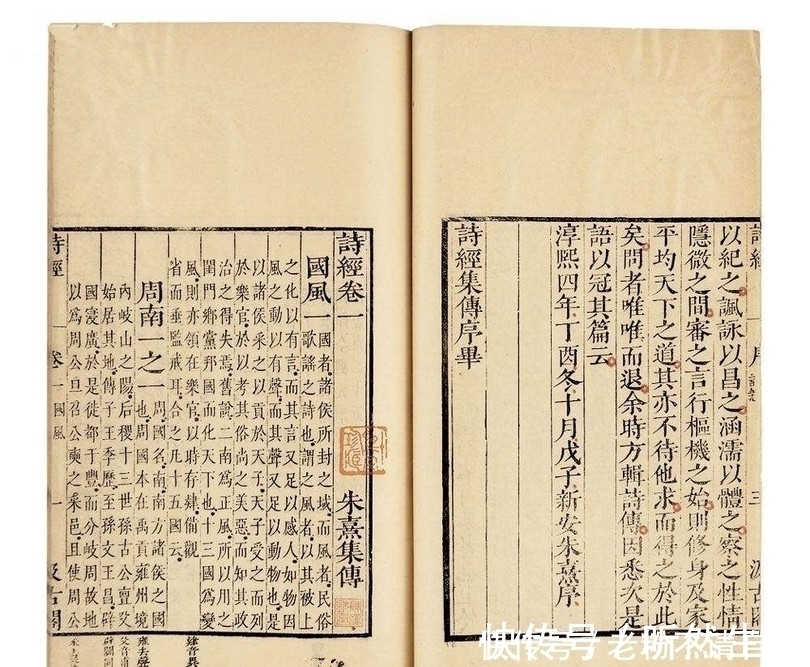 以紀之諷詠以昌之涵濡以體之察之性情
隱微之間審之言行樞機之始則修身及家
平均天下之道其亦不待他求而得之於此
矣問者唯唯而退余時方輯詩傳因悉次是
語以冠其篇云
淳熙四年丁酉冬十月戊子新安朱熹序
詩經集傳序畢
詩經卷一 朱熹集傳
國風一 國者諸侯所封之域而風者民俗
歌謠之詩也謂之風者以其被上
之化以有言而其言又足以感人如物因
風之動以有聲而其聲又足以動物也是
以諸侯采之以貢於天子天子受之而列
於樂官於以考其俗尚之美惡而知其政
治之得失焉舊說二南為正風所以用之
閨門鄉黨邦國而化天下也十三國為變
風則亦領在樂官以時存肄備觀
省而垂監戒耳合之凡十五國云
周南一之一 周國名南南方諸侯之國
也周國本在禹貢雍州境
內岐山之陽后稷十三世孫古公亶父
始居其地傳子王季歷至孫文王昌辟
國寖廣於是徙都于豐而分岐周故地
以為周公旦召公奭之采邑且使周公
詩經 卷一 國風 一 汲古閣
快传号